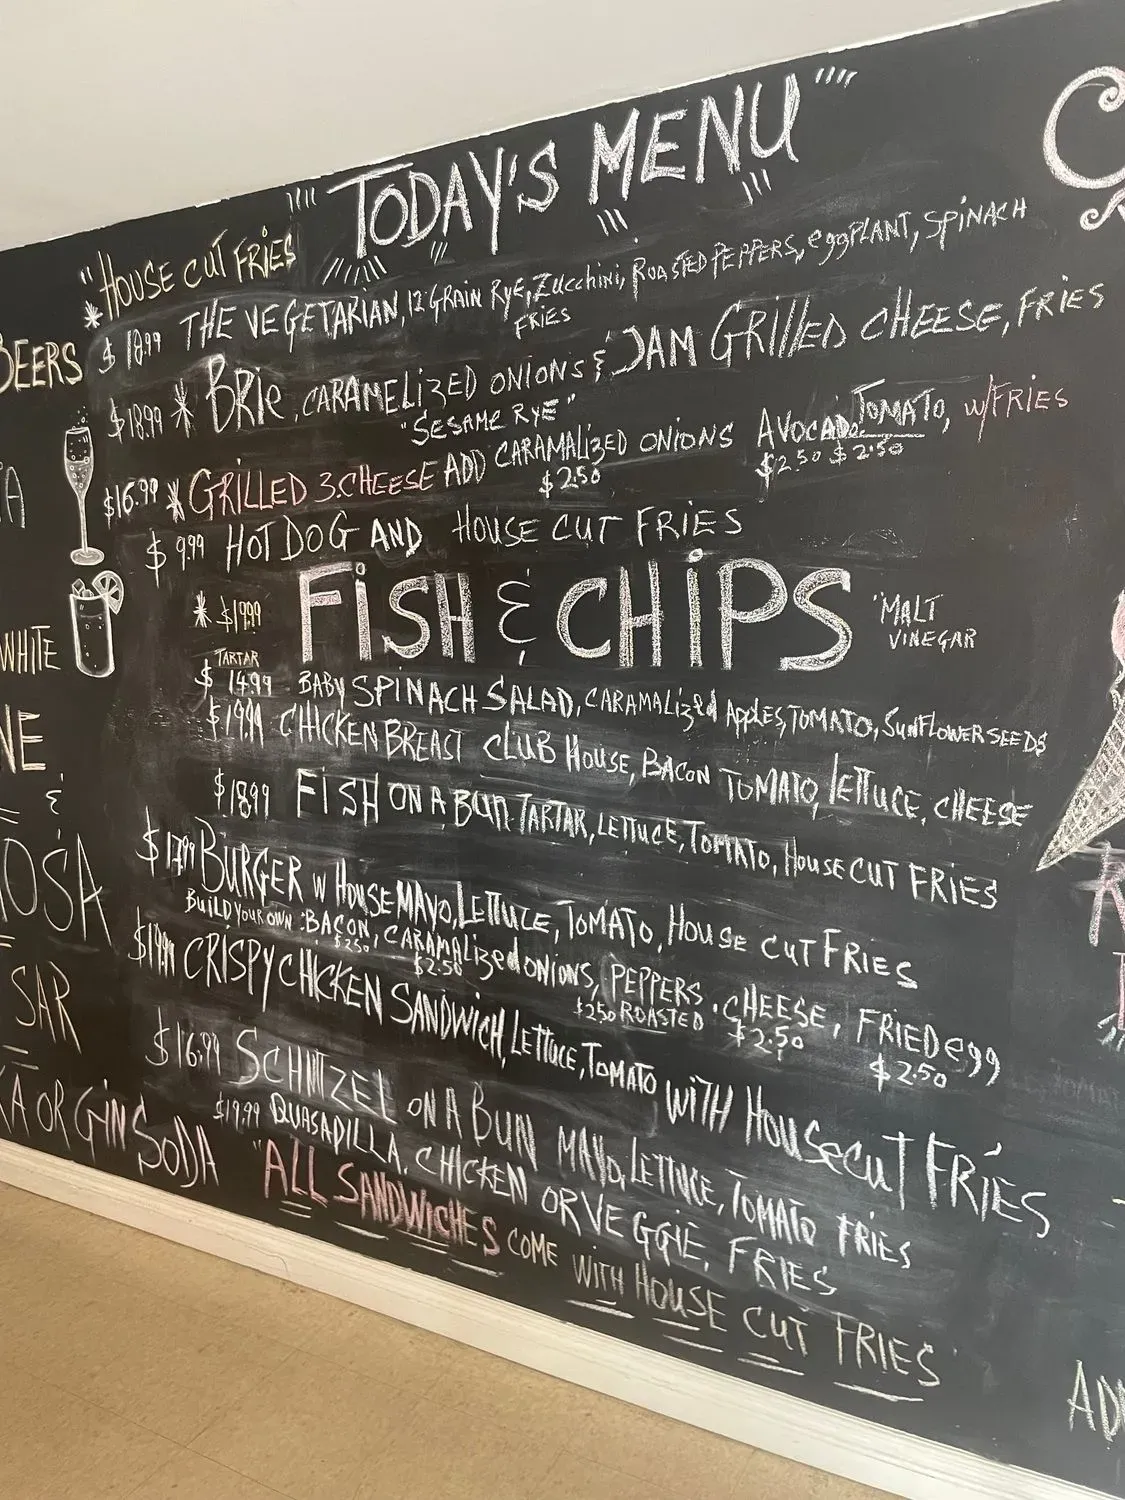 TODAY'S MENU
"HOUSE CUT FRIES
* $18.99 THE VEGETARIAN, 12 GRAIN RYE, Zucchini, ROASTED PEPPERS, eggPLANT, SPINACH
FRIES
$18.99 * BRIe, CARAMELIZED ONIONS & JAM GRIlled CHEESE, FRIES
"SESAME RYE"
$16.99 * GRILLED 3.CHEESE ADD CARAMALIZED ONIONS AVOCADO TOMATO, w/FRIES
$2.50 $2.50 $2.50
$9.99 HOT DOG AND HOUSE CUT FRIES
* $19.99 FiSH & CHiPS "MALT
VINEGAR
TARTAR
$14.99 BABY SPINACH SALAD, CARAMALizEd Apples, TOMATO, SunFLOWER SEEDS
$19.99 CHICKEN BREAST CLUB HOUSE, BACON TOMATO, LETTUCE, CHEESE
$18.99 FISH ON A BUN TARTAR, LETTUCE, TOMATO, HOUSE CUT FRIES
$17.99 BURGER w HOUSE MAYO, LETTUCE, TOMATO, HOUSE CUT FRIES
BUILD YOUR OWN: BACON, CARAMALIZEd ONIONS, PEPPERS. CHEESE, FRIED egg
$2.50 $2.50 $2.50 ROASTED $2.50 $2.50
$19.99 CRISPY CHICKEN SANDWICH, LETTUCE, TOMATO WITH HOUSE CUT FRIES
$16.99 SCHNITZEL ON A BUN MAYO, LETTUCE, TOMATO FRIES
$19.99 QUASADILLA, CHICKEN OR VEGGIE, FRIES
"ALL SANDWICHES COME WITH HOUSE CUT FRIES
BEERS
WHITE
&
OSA
SAR
KA OR GIN SODA